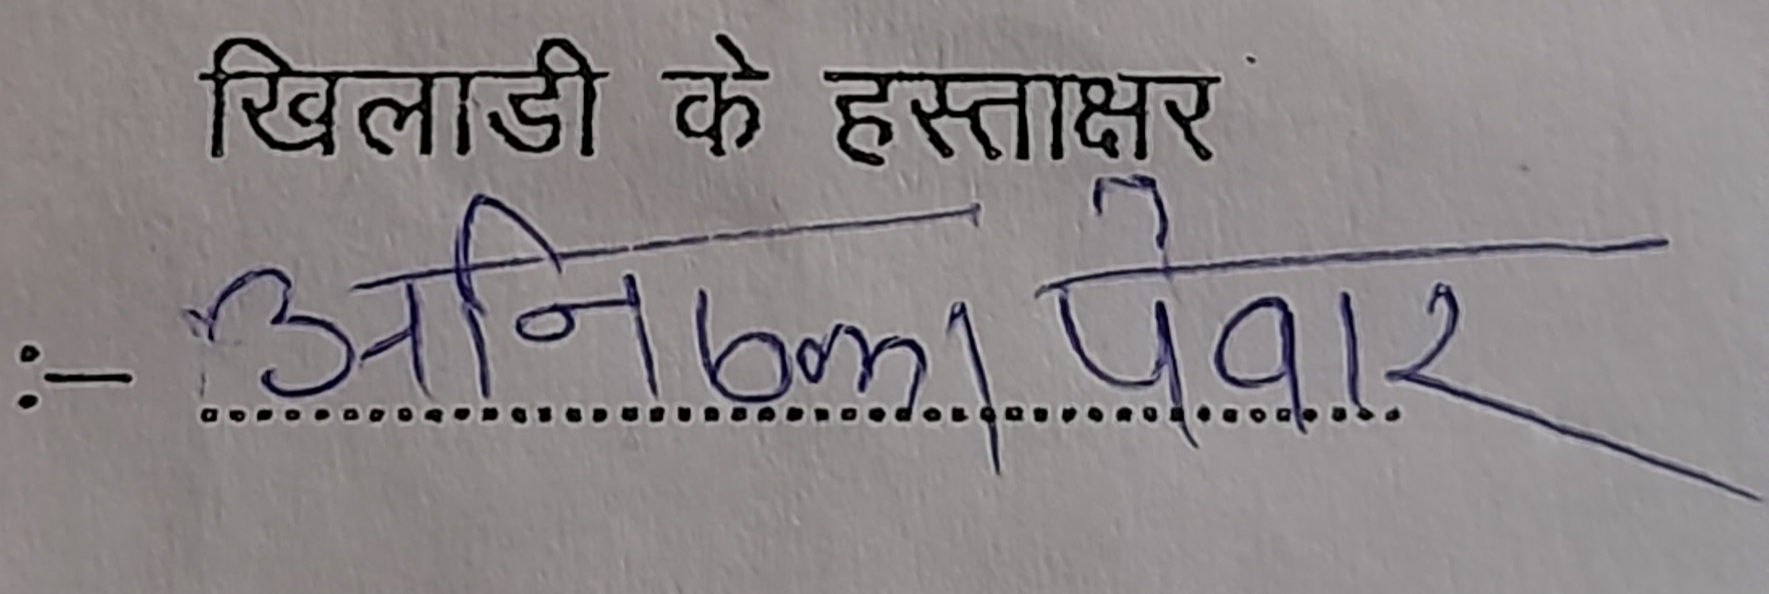 खिलाडी के हस्ताक्षर
:- अनिष्का पेवार